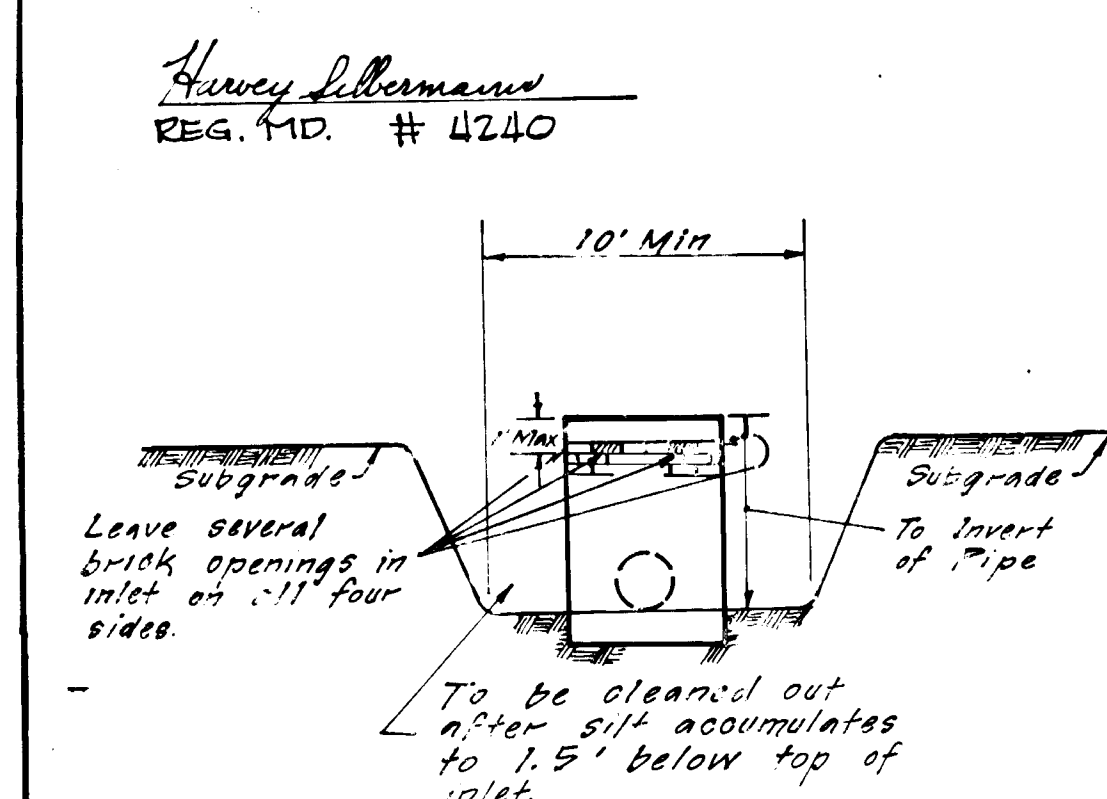 Harvey Silbermann
REG. MD. # 4240
10' Min
1' Max
Subgrade
Subgrade
Leave several
brick openings in
inlet on all four
sides.
To Invert
of Pipe
To be cleaned out
after silt accumulates
to 1.5' below top of
inlet.